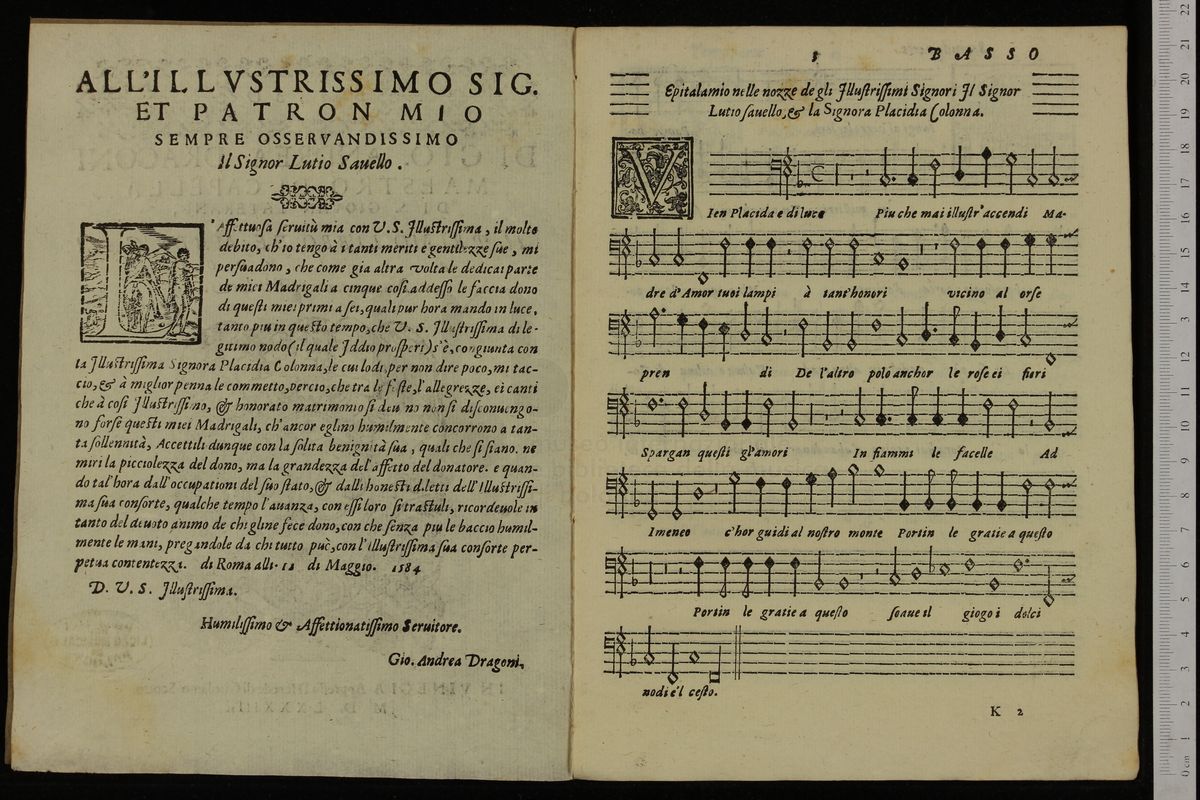 ALL'ILLVSTRISSIMO SIG.
ET PATRON MIO
SEMPRE OSSERVANDISSIMO
Il Signor Lutio Sauello.
L'Affettuosa seruitù mia con V. S. Illustrissima, il molto
debito, ch'io tengo à i tanti meriti e gentilezze sue, mi
persuadono, che come gia altra volta le dedicai parte
de miei Madrigali a cinque così addesso le faccia dono
di questi miei primi a sei, quali pur hora mando in luce,
tanto piu in questo tempo, che V. S. Illustrissima di le-
gitimo nodo (il quale Iddio prosperi) s'è, congiunta con
la Illustrissima Signora Placidia Colonna, le cui lodi, per non dire poco, mi tac-
cio, & à miglior penna le commetto, percio, che tra le feste, l'allegrezze, ei canti
che à cosi Illustrissimo, & honorato matrimonio si deu no non si disconuengo-
no forse questi miei Madrigali, ch'ancor eglino humilmente concorrono a tan-
ta sollennità, Accettili dunque con la solita benignità sua, quali che si siano. ne
miri la picciolezza del dono, ma la grandezza del'affetto del donatore. e quan-
do tal'hora dall'occupationi del suo stato, & dalli honesti diletti dell'Illustrissi-
ma sua consorte, qualche tempo l'auanza, con essi loro si trastuli, ricordeuole in
tanto del deuoto animo de chi gline fece dono, con che senza piu le baccio humil-
mente le mani, pregandole da chi tutto può, con l'Illustrissima sua consorte per-
petua contentezza. di Roma alli. 12 di Maggio. 1584
D. V. S. Illustrissima.
Humilissimo & Affettionatissimo Seruitore.
Gio. Andrea Dragoni.
1 BASSO
Epitalamio nelle nozze de gli Illustrissimi Signori Il Signor
Lutio sauello, & la Signora Placidia Colonna.
VIen Placida e di luce Piu che mai illustr'accendi Ma-
dre d'Amor tuoi lampi à tant'honori vicino al orse
pren di De l'altro polo anchor le rose ei fiori
Spargan questi gl'amori In fiammi le facelle Ad
Imeneo c'hor guidi al nostro monte Portin le gratie a questo
Portin le gratie a questo soaue il giogo i dolci
nodi e'l cesto.
K 2